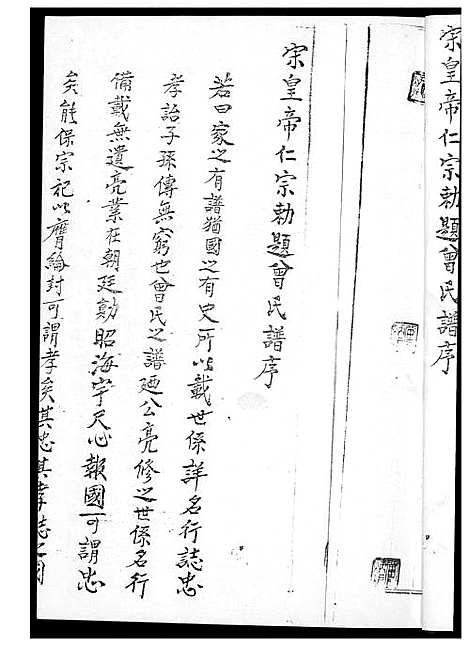 宗皇帝仁宗勅題曾氏譜序
宗皇帝仁宗勅題曾氏譜序
若曰家之有譜猶國之有史所以載世係詳名行誌忠
孝詒子孫傳無窮也曾氏之譜廼公亮修之世係名行
備載無遺亮業在朝廷勛昭海宇尺心報國可謂忠
矣能保宗祀以膺綸封可謂孝矣其忠其孝志之